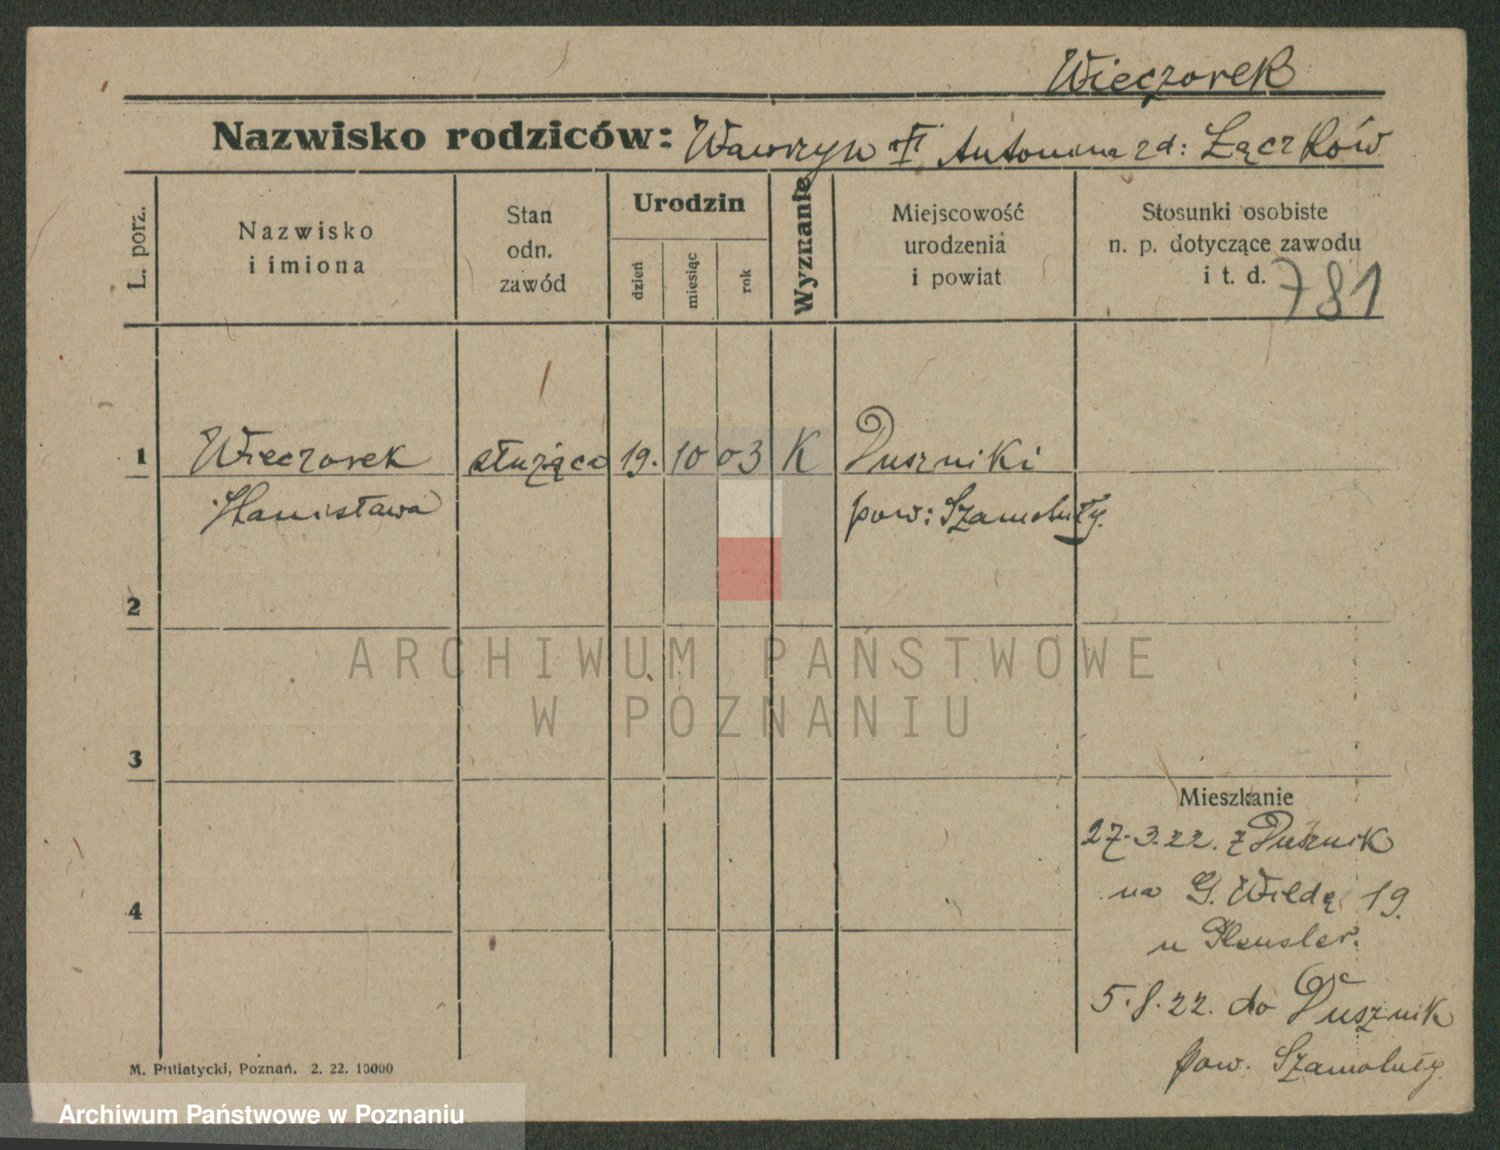 Wieczorek
Nazwisko rodziców: Wawrzyn i Antonina zd: Łączków
L. porz.
Nazwisko
i imiona
Stan
odn.
zawód
Urodzin
dzień
miesiąc
rok
Wyznanie
Miejscowość
urodzenia
i powiat
Stosunki osobiste
n. p. dotyczące zawodu
i t. d.
781
1 Wieczorek służąca 19. 10 03 K Duszniki
Stanisława pow: Szamotuły.
2
ARCHIWUM PAŃSTWOWE
W POZNANIU
3
Mieszkanie
27.3.22. z Dusznik
na G. Wildę 19.
4
u
5.8.22. do Dusznik
pow. Szamotuły
M. Putiatycki, Poznań. 2. 22. 10000
Archiwum Państwowe w Poznaniu